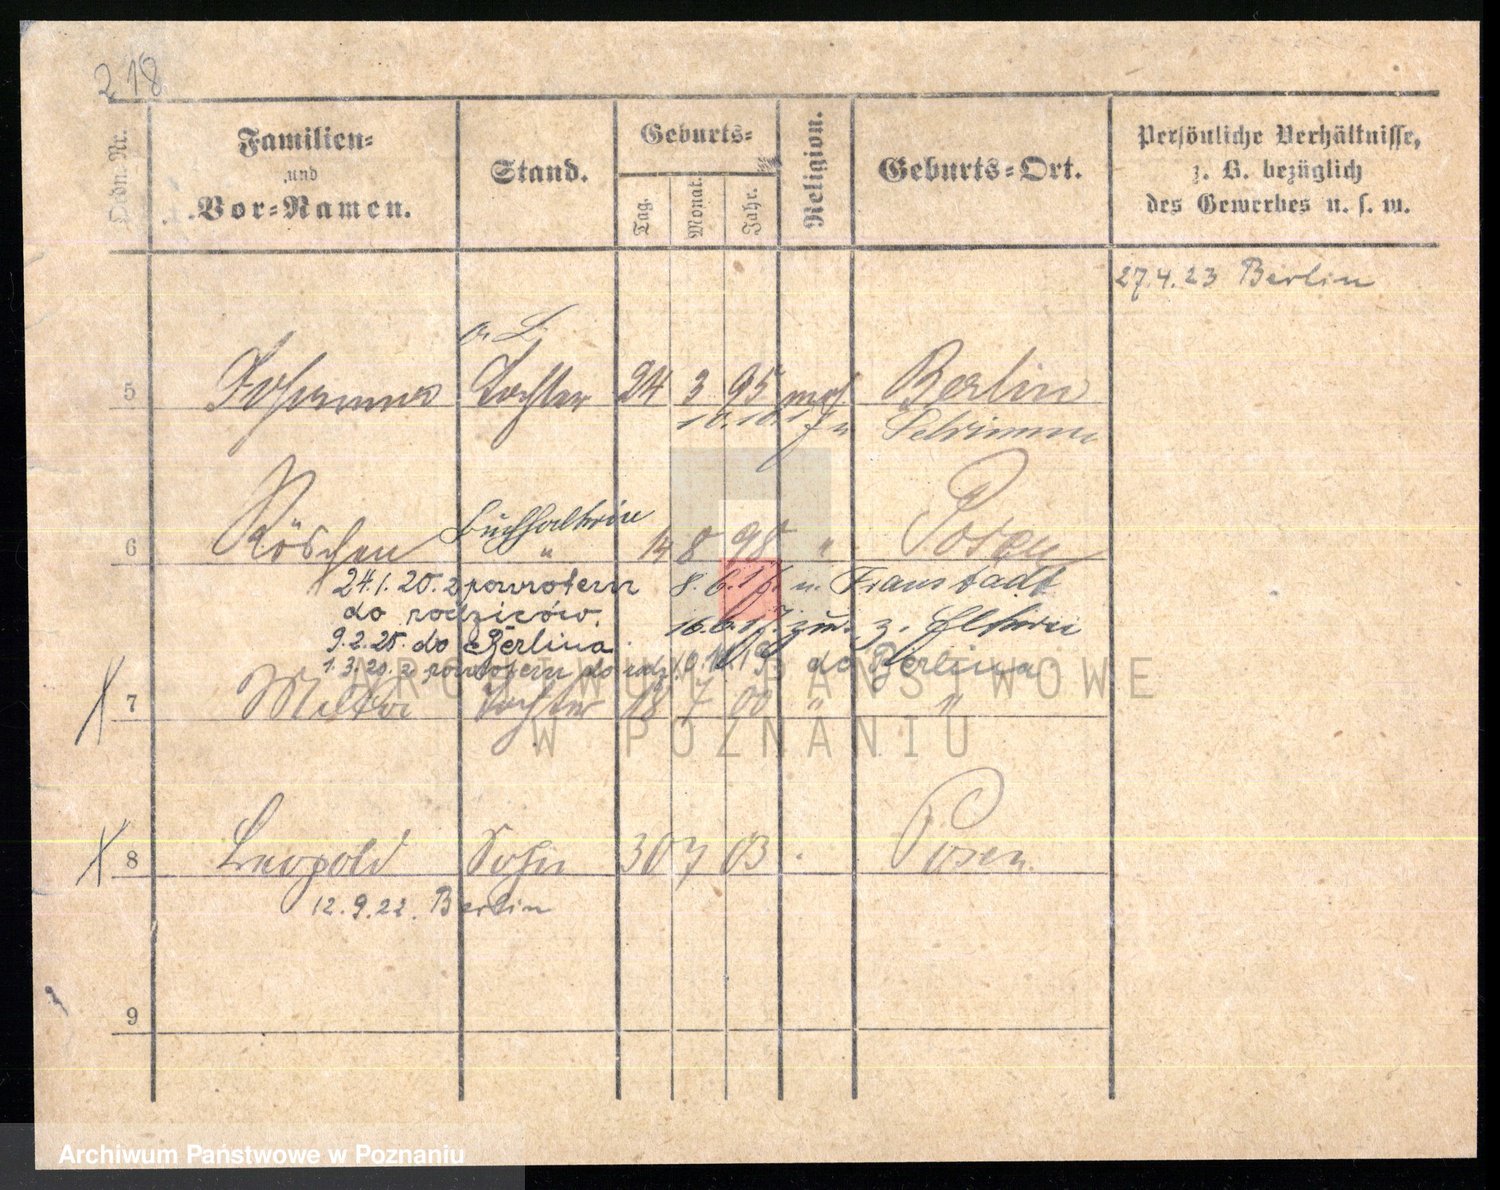 218
Lfdn. Nr.
Familien-
und
Vor-Namen.
Stand.
Geburts-
Tag.
Monat.
Jahr.
Religion.
Geburts-Ort.
Persönliche Verhältnisse,
z. B. bezüglich
des Gewerbes u. s. w.
27.4.23 Berlin
5 Tochter 24 3 95 mos. Berlin
10.10.17 n Schrimm
Buchhalterin
6 Röschen " 14 8 98 " Posen
24.1.20. z powrotem 8.6.17. n. Fraustadt
do rodziców. 16.6.17. zur. z. Eltern
9.2.20. do Berlina
1.3.20. z powrotem do rodz. do Berlina
7 Meta Tochter 18 7 00 " "
8 Leopold Sohn 30 7 03 Posen.
12.9.22. Berlin
9
ARCHIWUM PAŃSTWOWE
W POZNANIU
Archiwum Państwowe w Poznaniu